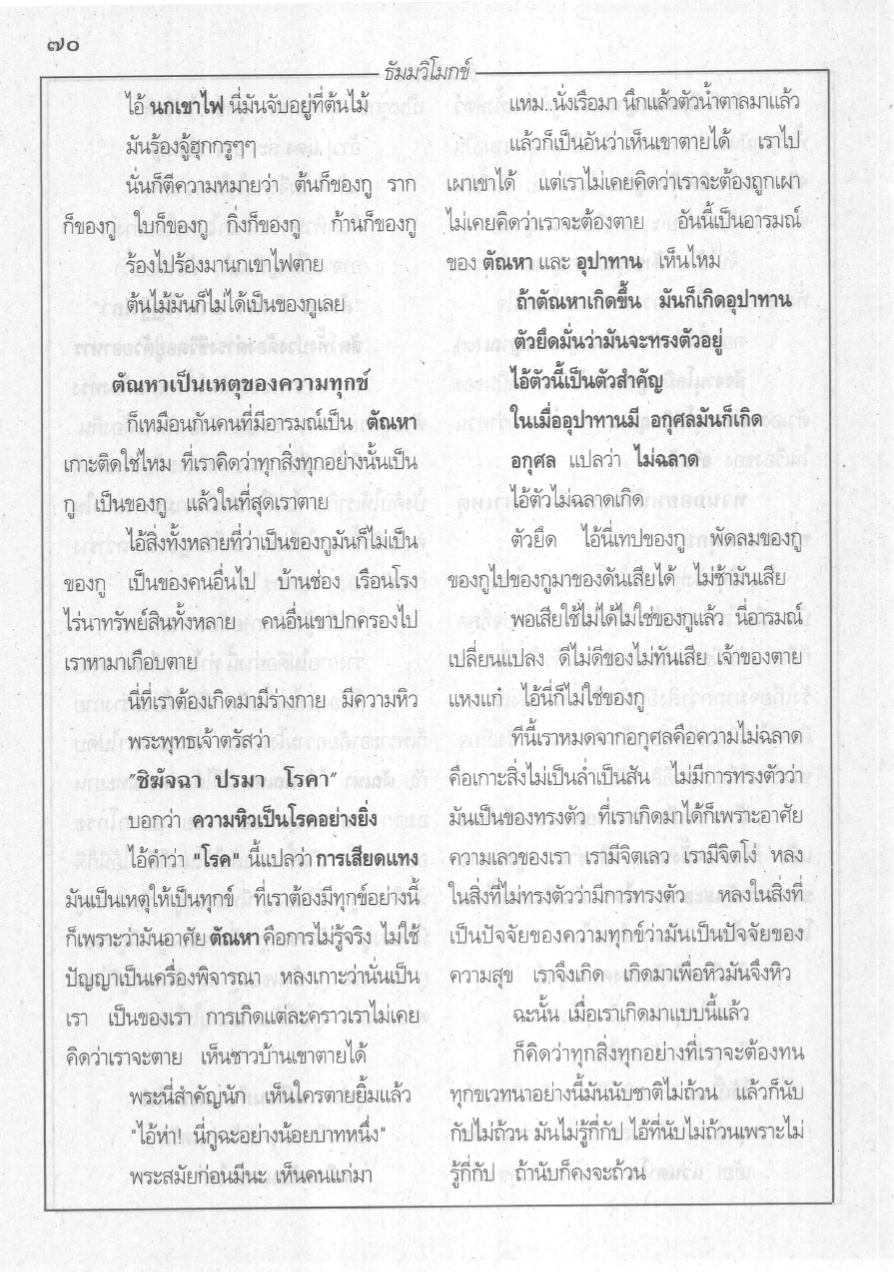 ๗๐
ธัมมวิโมกข์
ไอ้ นกเขาไฟ นี่มันจับอยู่ที่ต้นไม้
มันร้องจู้ฮุกกรูๆๆ
นั่นก็ตีความหมายว่า ต้นก็ของกู ราก
ก็ของกู ใบก็ของกู กิ่งก็ของกู ก้านก็ของกู
ร้องไปร้องมานกเขาไฟตาย
ต้นไม้มันก็ไม่ได้เป็นของกูเลย
ตัณหาเป็นเหตุของความทุกข์
ก็เหมือนกันคนที่มีอารมณ์เป็น ตัณหา
เกาะติดใช่ไหม ที่เราคิดว่าทุกสิ่งทุกอย่างนั้นเป็น
กู เป็นของกู แล้วในที่สุดเราตาย
ไอ้สิ่งทั้งหลายที่ว่าเป็นของกูมันก็ไม่เป็น
ของกู เป็นของคนอื่นไป บ้านช่อง เรือนโรง
ไร่นาทรัพย์สินทั้งหลาย คนอื่นเขาปกครองไป
เราหามาเกือบตาย
นี่ที่เราต้องเกิดมามีร่างกาย มีความหิว
พระพุทธเจ้าตรัสว่า
"ชิฆัจฉา ปรมา โรคา"
บอกว่า ความหิวเป็นโรคอย่างยิ่ง
ไอ้คำว่า "โรค" นี้แปลว่า การเสียดแทง
มันเป็นเหตุให้เป็นทุกข์ ที่เราต้องมีทุกข์อย่างนี้
ก็เพราะว่ามันอาศัย ตัณหา คือการไม่รู้จริง ไม่ใช้
ปัญญาเป็นเครื่องพิจารณา หลงเกาะว่านั่นเป็น
เรา เป็นของเรา การเกิดแต่ละคราวเราไม่เคย
คิดว่าเราจะตาย เห็นชาวบ้านเขาตายได้
พระนี่สำคัญนัก เห็นใครตายยิ้มแล้ว
"ไอ้ห่า! นี่กูฉะอย่างน้อยบาทหนึ่ง"
พระสมัยก่อนมีนะ เห็นคนแก่มา
แหม..นั่งเรือมา นึกแล้วตัวน้ำตาลมาแล้ว
แล้วก็เป็นอันว่าเห็นเขาตายได้ เราไป
เผาเขาได้ แต่เราไม่เคยคิดว่าเราจะต้องถูกเผา
ไม่เคยคิดว่าเราจะต้องตาย อันนี้เป็นอารมณ์
ของ ตัณหา และ อุปาทาน เห็นไหม
ถ้าตัณหาเกิดขึ้น มันก็เกิดอุปาทาน
ตัวยึดมั่นว่ามันจะทรงตัวอยู่
ไอ้ตัวนี้เป็นตัวสำคัญ
ในเมื่ออุปาทานมี อกุศลมันก็เกิด
อกุศล แปลว่า ไม่ฉลาด
ไอ้ตัวไม่ฉลาดเกิด
ตัวยึด ไอ้นี่เทปของกู พัดลมของกู
ของกูไปของกูมาของดันเสียได้ ไม่ช้ามันเสีย
พอเสียใช้ไม่ได้ไม่ใช่ของกูแล้ว นี่อารมณ์
เปลี่ยนแปลง ดีไม่ดีของไม่ทันเสีย เจ้าของตาย
แหงแก๋ ไอ้นี่ก็ไม่ใช่ของกู
ทีนี้เราหมดจากอกุศลคือความไม่ฉลาด
คือเกาะสิ่งไม่เป็นล่ำเป็นสัน ไม่มีการทรงตัวว่า
มันเป็นของทรงตัว ที่เราเกิดมาได้ก็เพราะอาศัย
ความเลวของเรา เรามีจิตเลว เรามีจิตโง่ หลง
ในสิ่งที่ไม่ทรงตัวว่ามีการทรงตัว หลงในสิ่งที่
เป็นปัจจัยของความทุกข์ว่ามันเป็นปัจจัยของ
ความสุข เราจึงเกิด เกิดมาเพื่อหิวมันจึงหิว
ฉะนั้น เมื่อเราเกิดมาแบบนี้แล้ว
ก็คิดว่าทุกสิ่งทุกอย่างที่เราจะต้องทน
ทุกขเวทนาอย่างนี้มันนับชาติไม่ถ้วน แล้วก็นับ
กัปไม่ถ้วน มันไม่รู้กี่กัป ไอ้ที่นับไม่ถ้วนเพราะไม่
รู้กี่กัป ถ้านับก็คงจะถ้วน